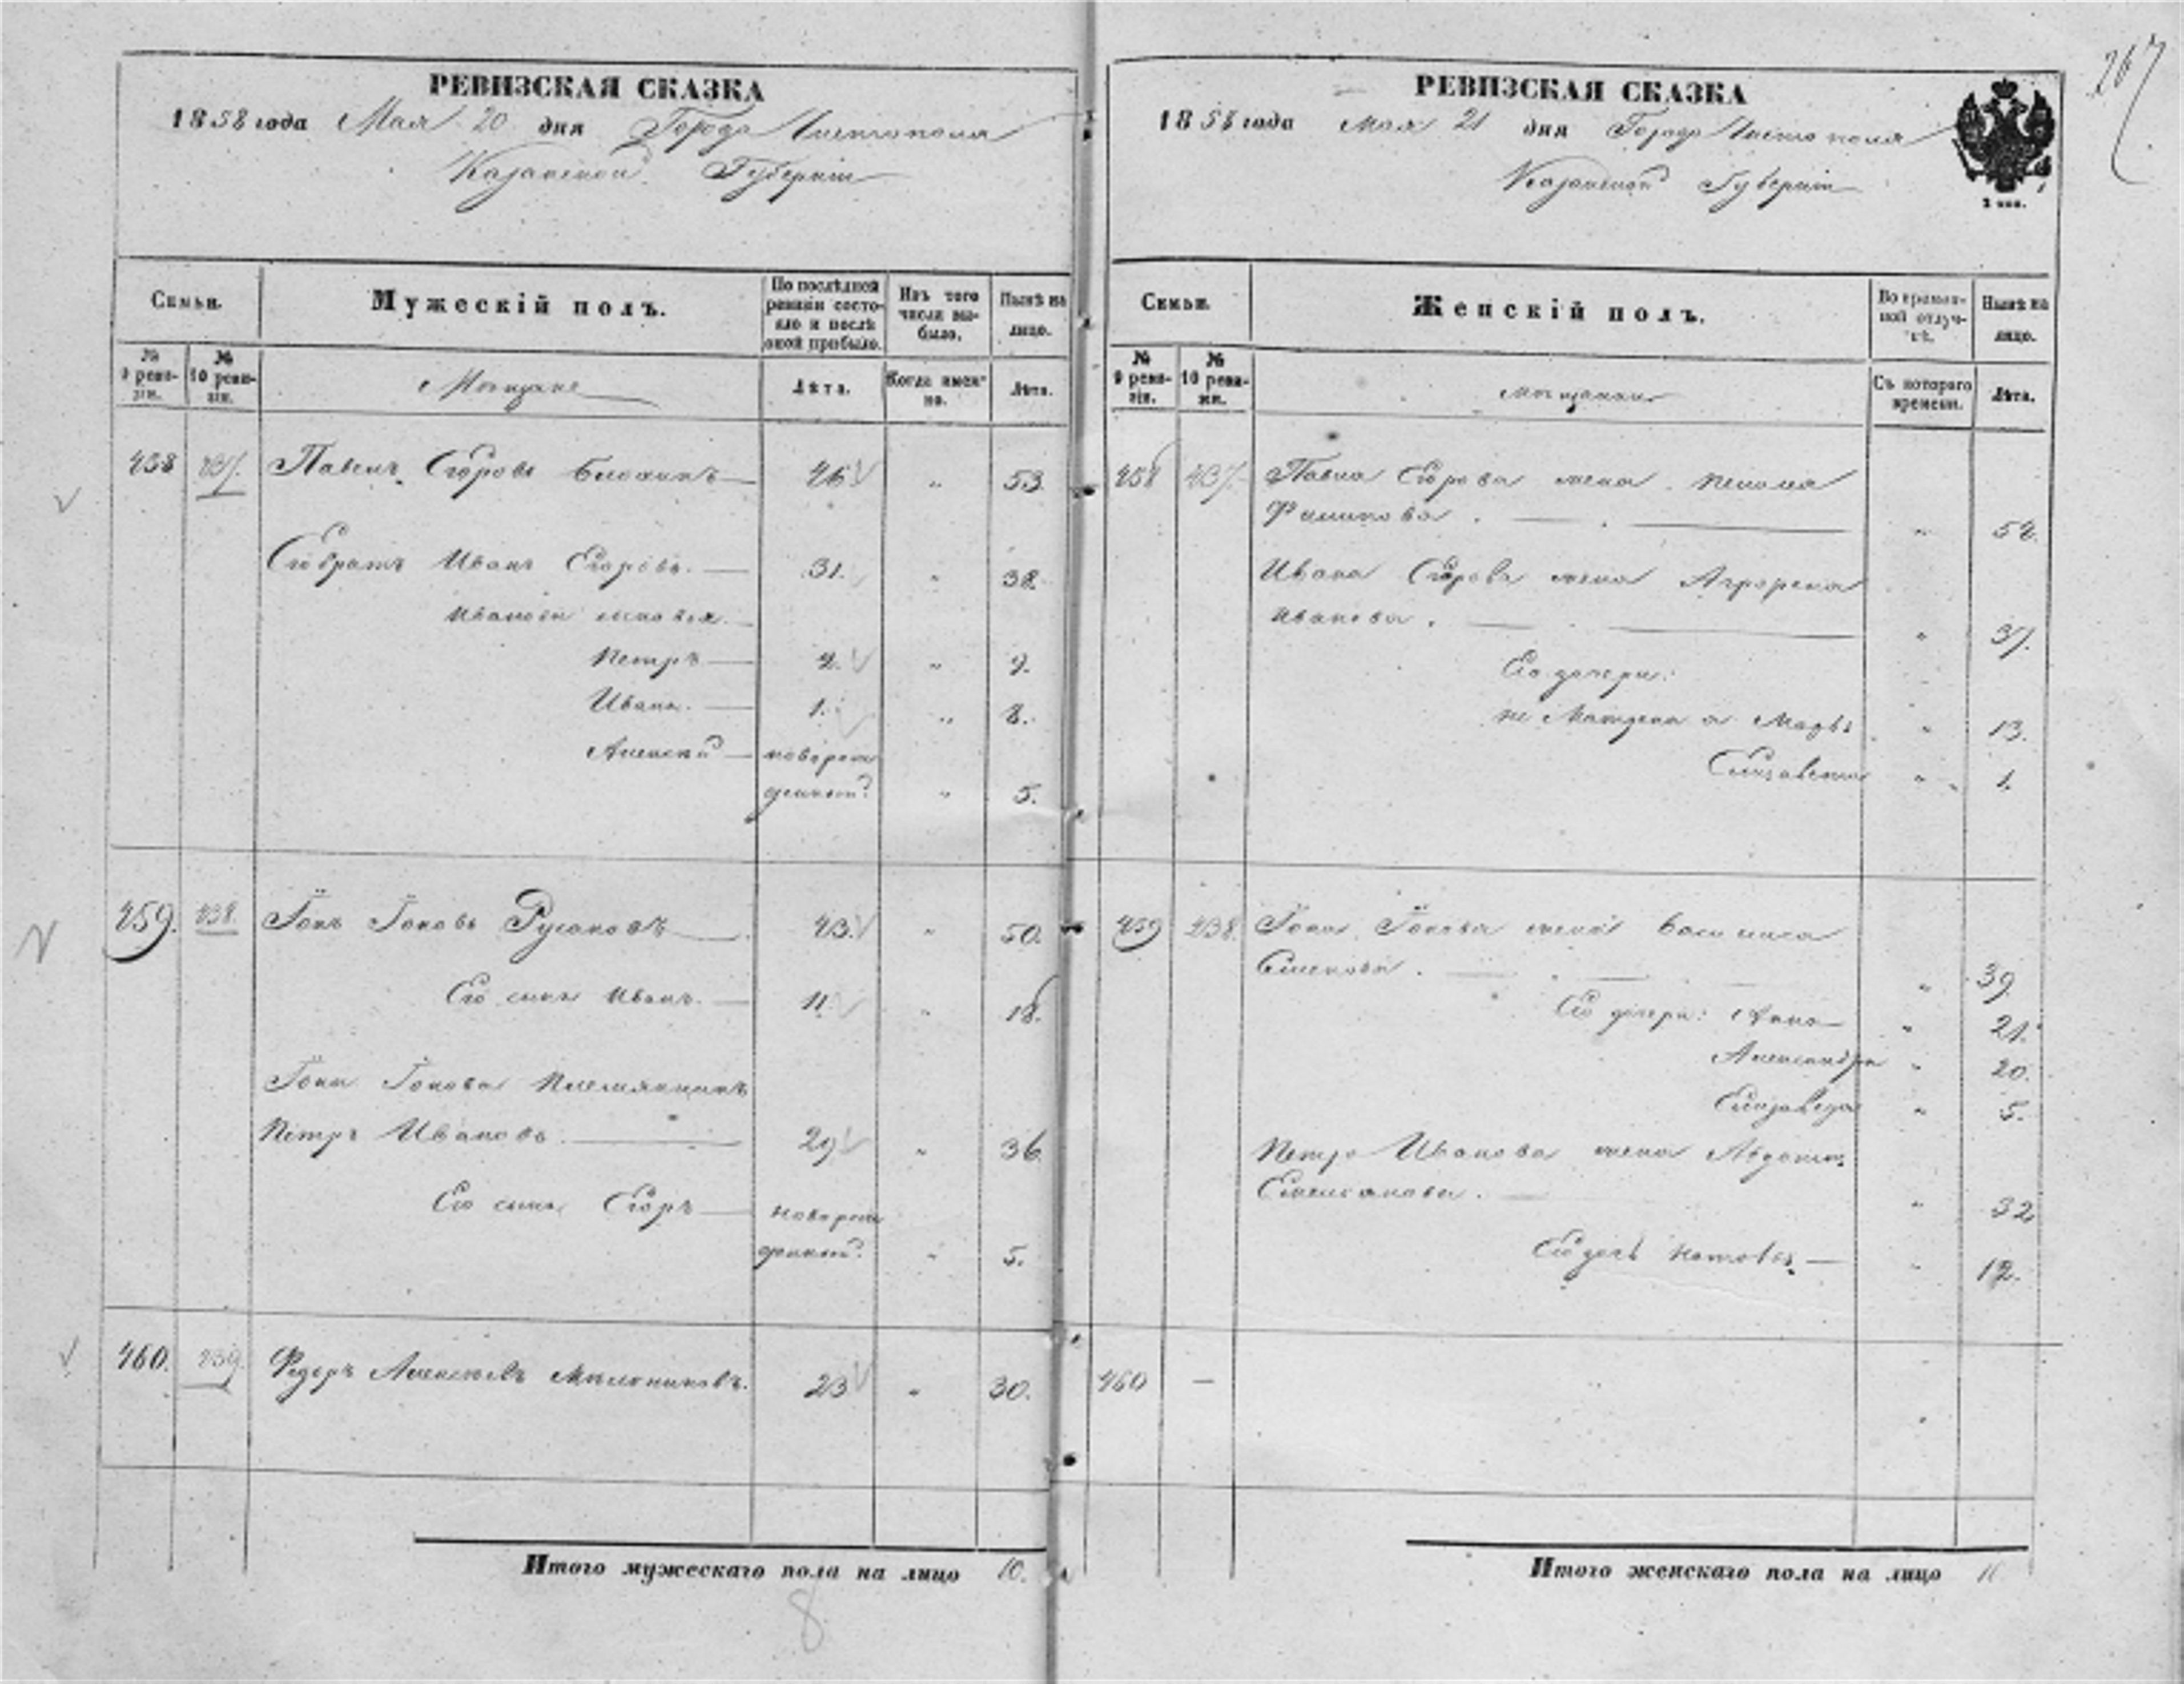 267
РЕВИЗСКАЯ СКАЗКА
1858 года Мая 20 дня Города Чистополя
Казанской Губерніи
Семьи.
Мужескій полъ.
По послѣдней ревизіи состояло и послѣ оной прибыло.
Изъ того числа выбыло.
Нынѣ на лицо.
№ 9 ревизіи.
№ 10 ревизіи.
Мещане
Лѣта.
Когда именно.
Лѣта.
458 437. Павелъ Егоровъ 46 " 53.
Его братъ Иванъ Егоровъ. 31. " 38.
Ивановы сыновья
Петръ 2. " 9.
Иванъ. 1. " 8.
Алексей новорож
денный. " 5.
459. 438. Іонъ Іоновъ Русаковъ 43. " 50.
Его сынъ Иванъ. 11. " 18.
Іона Іонова племянникъ
Петръ Ивановъ 29 " 36
Его сынъ Егоръ новорож
денный. " 5.
460. 439. Федоръ Алексеевъ 23 " 30.
Итого мужескаго пола на лицо 10.
8
РЕВИЗСКАЯ СКАЗКА
1858 года Мая 21 дня Города Чистополя
Казанской Губерніи
Семьи.
Женскій полъ.
Во временной отлучкѣ.
Нынѣ на лицо.
№ 9 ревизіи.
№ 10 ревизіи.
мещанки
Съ котораго времени.
Лѣта.
458 437. Павла Егорова жена
Филипова. " 52.
Ивана Егорова жена
Иванова. " 37.
Его дочери:
" 13.
Елизавета " 1.
459 438. Іона Іонова жена Василиса
" 39.
Его дочери: Анна " 21.
Александра " 20.
Елизавета " 5.
Петра Иванова жена Авдотья
" 32
Его дочь " 12.
460 —
Итого женскаго пола на лицо 10